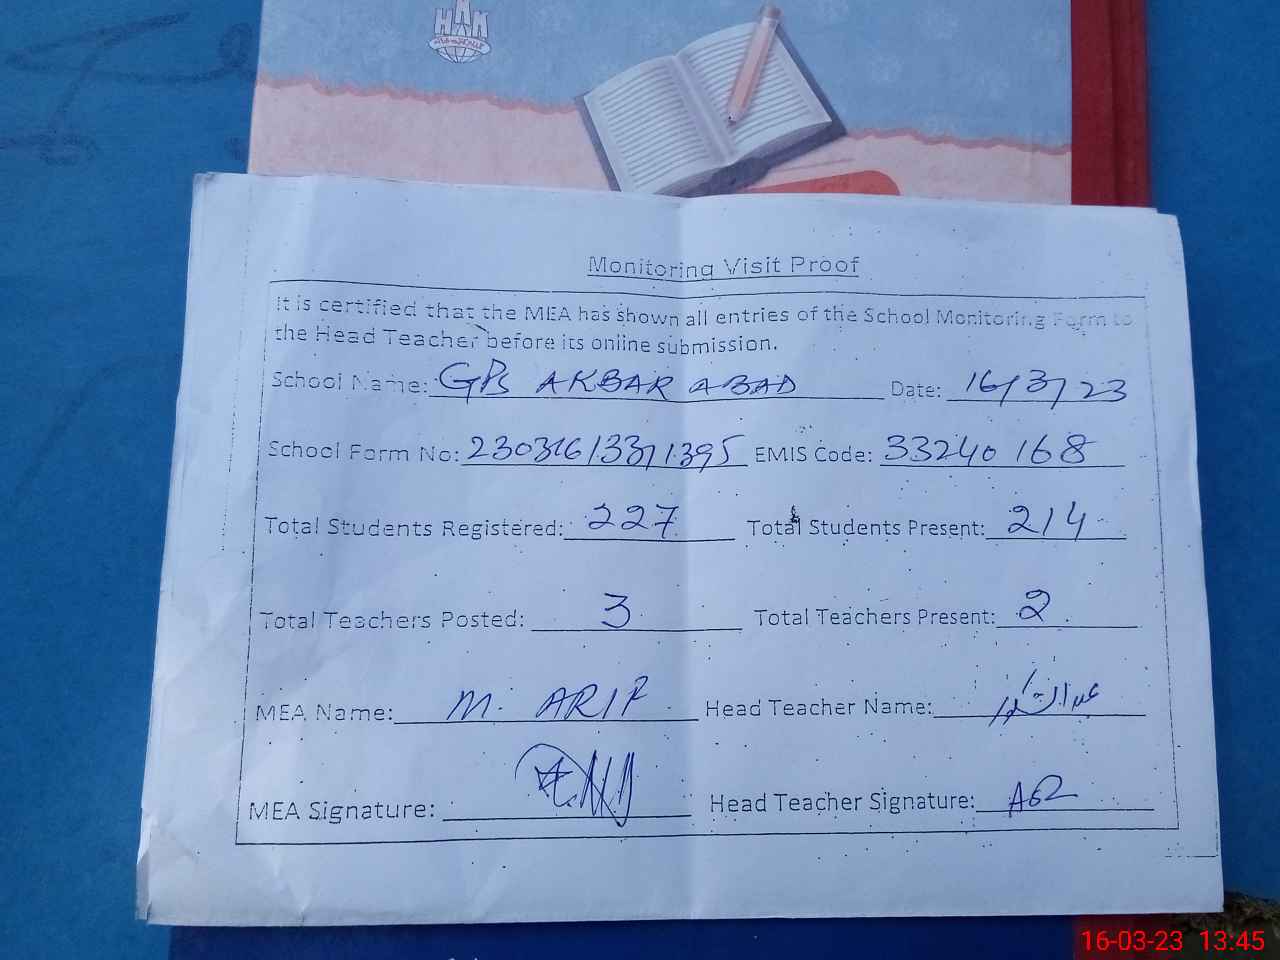 HAK
Monitoring Visit Proof
It is certified that the MEA has shown all entries of the School Monitoring Form to
the Head Teacher before its online submission.
School Name: GPS AKBAR ABAD Date: 16/3/23
School Form No: 23031613371395 EMIS Code: 33240168
Total Students Registered: 227 Total Students Present: 214
Total Teachers Posted: 3 Total Teachers Present: 2
MEA Name: M. ARIF Head Teacher Name:
MEA Signature: Head Teacher Signature:
16-03-23 13:45